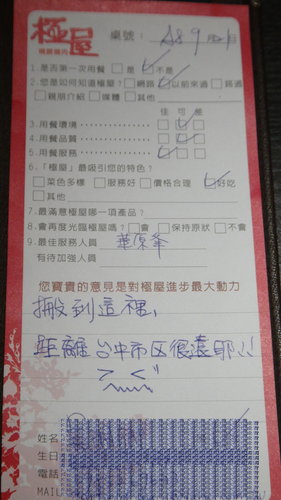 極屋
桌號：A89
1.是否第一次用餐 □是 ☑不是
2.您是如何知道極屋？□網路 ☑以前來過 □路過
□親朋介紹 □媒體 □其他
佳 可 差
3.用餐環境
4.用餐品質
5.用餐服務
6.「極屋」最吸引您的特色？
□菜色多樣 □服務好 □價格合理 ☑好吃
□其他
7.最滿意極屋哪一項產品？
8.會再度光臨極屋嗎？□會 □保持原狀 □不會
9.最佳服務人員
有待加強人員
您寶貴的意見是對極屋進步最大動力
搬到這裡，
距離台中市区很遠耶!!
姓名
生日
電話
MAIL